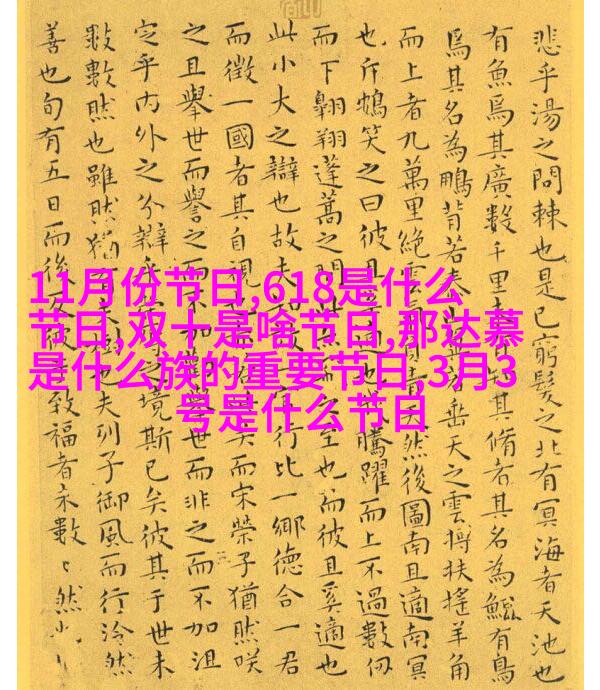 11月份节日,618是什么
节日,双十是啥节日,那达慕
是什么族的重要节日,3月3
号是什么节日
悲乎湯之問棘也是已窮髮之北有冥海者天池也
有魚焉其廣數千里未其脩者其名為鯤有鳥
焉其名為鵬背若泰垂天之雲摶扶搖羊角
而上者九萬里絕雲青天然後圖南且適南冥
也斥鴳笑之曰彼且適也騰躍而上不過數仞
而下翱翔蓬蒿之間此之至也而彼且奚適也
此小大之辯也故夫行比一鄉德合一君
而徵一國者其自視也矣而宋榮子猶然咲
之且舉世而譽之而不加而非之而不加沮
定乎內外之分辯之境斯已矣彼其于世未
數數然也雖然猶樹也夫列子御風而行泠然
善也旬有五日而後致福者未數〻然也